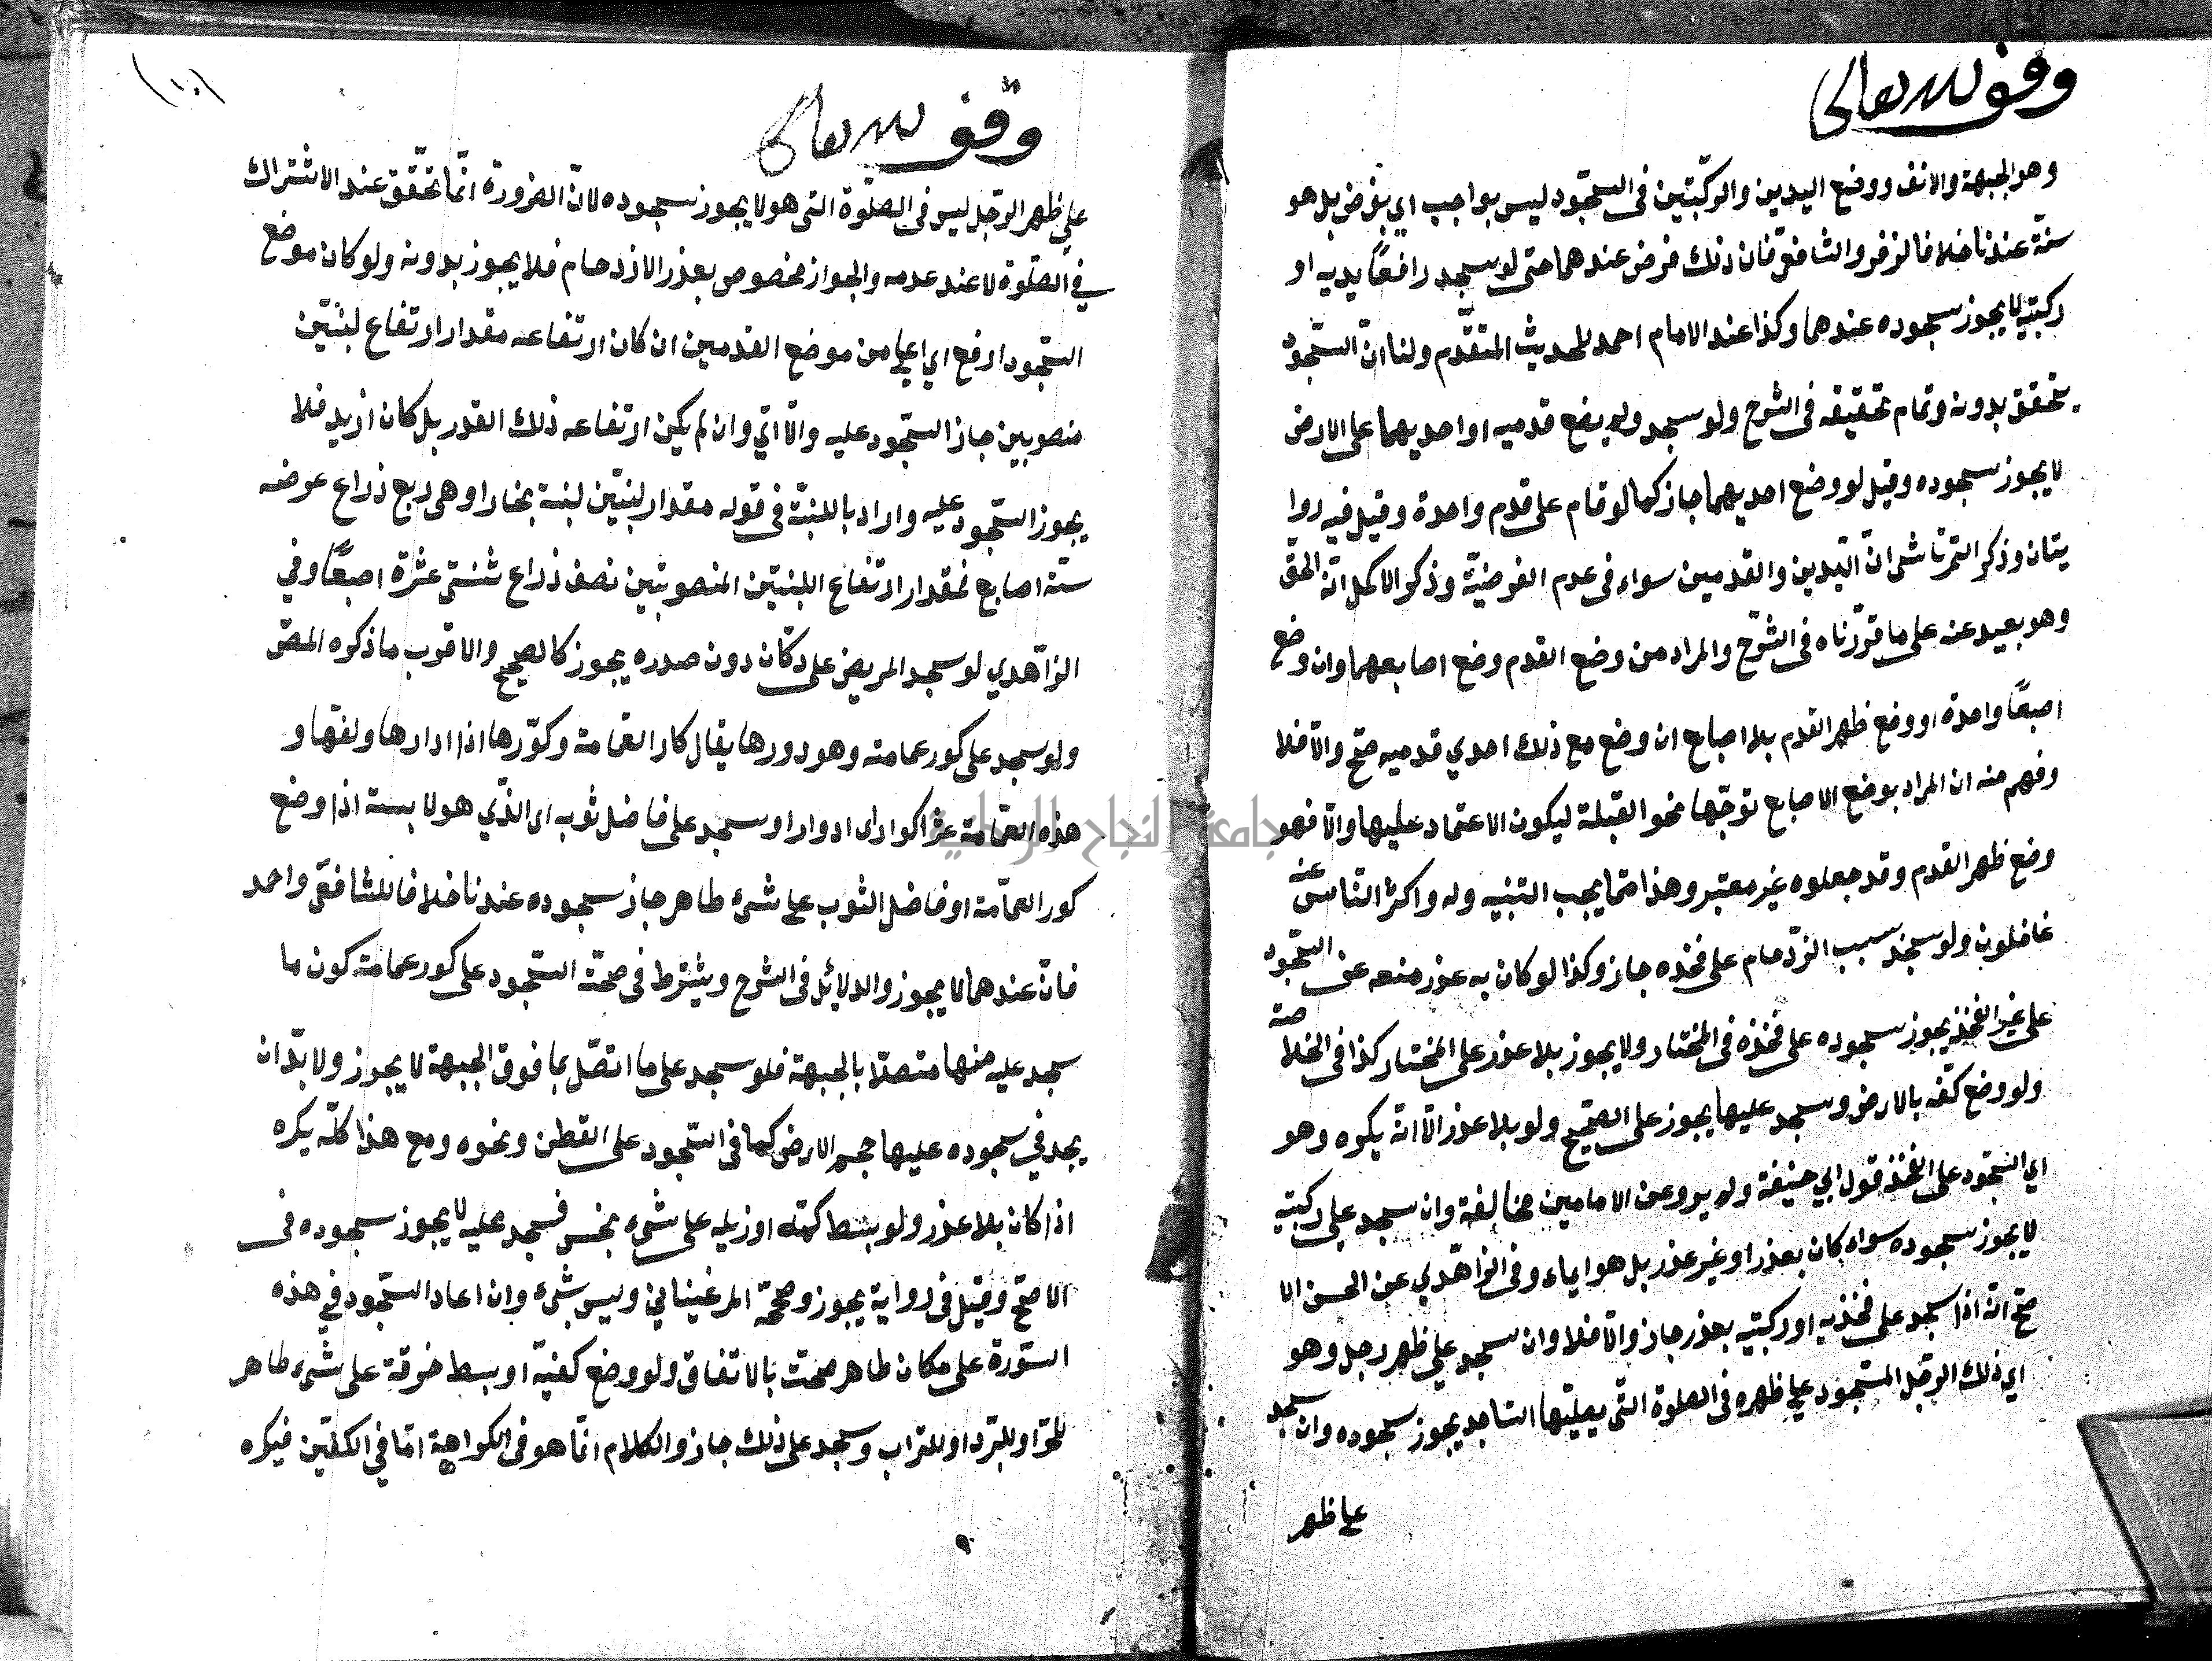 وقف لله تعالى
وهو الجبهة والانف ووضع اليدين والركبتين فى السّجود ليس بواجب اي بفرض بل هو
سنة عندنا خلافا لزفر والشافعىّ فان ذلك فرض عندهما حتى لو سجد رافعًا يديه او
ركبتيه لا يجوز سجوده عندهما وكذا عند الامام احمد للحديث المتقدّم ولنا انّ السّجود
يتحقق بدونه وتمام تحقيقه فى الشرح ولو سجد ولم يضع قدميه او احديهما على الارض
لا يجوز سجوده وقيل لو وضع احديهما جاز كما لو قام على قدم واحدة وقيل فيه روا
يتان وذكر التمرتاشى انّ اليدين والقدمين سواء فى عدم الفرضيّة وذكر الاكمل انّه الحق
وهو بعيد عنه على ما قرّرناه فى الشّرح والمراد من وضع القدم وضع اصابعهما وان وضع
اصبعًا واحدة او وضع ظهر القدم بلا اصابع ان وضع مع ذلك احدي قدميه صحّ والّا فلا
وفهم منه ان المراد بوضع الاصابع توجّها نحو القبلة ليكون الاعتماد عليها والّا فهو
وضع ظهر القدم وقد جعلوه غير معتبر وهذا ممّا يجب التنبيه وله واكثر النّاس عنه
غافلون ولو سجد بسبب الزّحام على فخذه جاز وكذا لو كان به عذر منعه عن السّجود
على غير الفخذ يجوز سجوده على فخذه فى المختار ولا يجوز بلا عذر على المختار كذا فى الخلاصة
ولو وضع كفّه بالارض وسجد عليها يجوز على الصّحيح ولو بلا عذر الّا انّه يكره وهو
اي السّجود على الفخذ قول ابي حنيفة ولم يرو عن الامامين مخالفة وان سجد على ركبتيه
لا يجوز سجوده سواء كان بعذر او غير عذر بل هو ايماء وفى الزاهدي عن الحسن الا
صحّ انّه اذا سجد على فخذيه او ركبتيه بعذر جاز والّا فلا وان سجد على ظهر رجل وهو
اي ذلك الرّجل المسجود على ظهره فى الصلوة التّى يصلّيها السّاجد يجوز سجوده وان سجد
على ظهر
وقف لله تعالى
على ظهر الرّجل ليس فى الصّلوة التى هو لا يجوز سجوده لانّ الضرورة انّما تتحّقق عند الاشتراك
في الصّلوة لا عند عدمه والجواز مخصوص بعذر الازدحام فلا يجوز بدونه ولو كان موضع
السّجود ارفع اي اعلى من موضع القدمين ان كان ارتفاعه مقدار ارتفاع لبنتين
منصوبين جاز السّجود عليه والّا اي وان لم يكن ارتفاعه ذلك القدر بل كان ازيد فلا
يجوز السّجود عليه واراد باللبنة فى قوله مقدار لبنتين لبنة بخارا وهى ربع ذراع عرضه
ستّة اصابع فمقدار ارتفاع اللبنتين المنصوبتين نصف ذراع ثنتى عشرة اصبعًا وفي
الزّاهدي لو سجد المريض على دكّان دون صدره يجوز كالصحيح والاقرب ما ذكره المصّ
ولو سجد على كور عمامته وهو دورها يقال كار العمامة وكوّرها اذا ادارها ولفها و
هذه العمامة عشر اكوار اى ادوار او سجد على فاضل ثوبه اى الذّي هو لابسه اذا وضع
كور العمامة او فاضل الثوب على شىء طاهر جاز سجوده عندنا خلافا للشافعّى واحمد
فانّ عندهما لا يجوز والدلائل فى الشرح ويشترط فى صحّة السّجود على كور عمامته كون ما
سجد عليه منها متصلا بالجبهة فلو سجد على ما اتصّل بما فوق الجبهة لا يجوز ولا بدّ ان
يجد في سجوده عليها حجم الارض كما فى السّجود على القطن ونحوه ومع هذا كلّه يكره
اذا كان بلا عذر ولو بسط كمّه او ذيله على شىء نجس فسجد عليه لا يجوز سجوده فى
الاصحّ وقيل فى رواية يجوز وصححّه المرغيناني وليس بشىء وان اعاد السّجود في هذه
الصّورة على مكان طاهر صحت بالاتفاق ولو وضع كفيّه او بسط خرقة على شىء طاهر
للحرّ او للبرّد او للتراب وسجد على ذلك جاز والكلام انّما هو فى الكراهة امّا في الكفّين فيكره
جامعة النجاح الوطنية